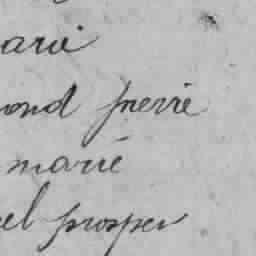 arié
ond pierre
marié
el prosper